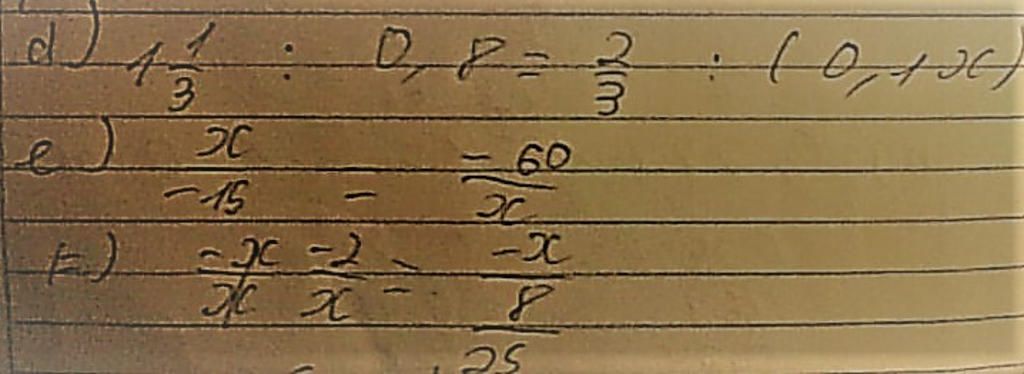 d) 1 1/3 : 0,8 = 2/3 : (0,1x)
e) x/-15 - -60/x
F) -x/x -2/x = -x/8/25